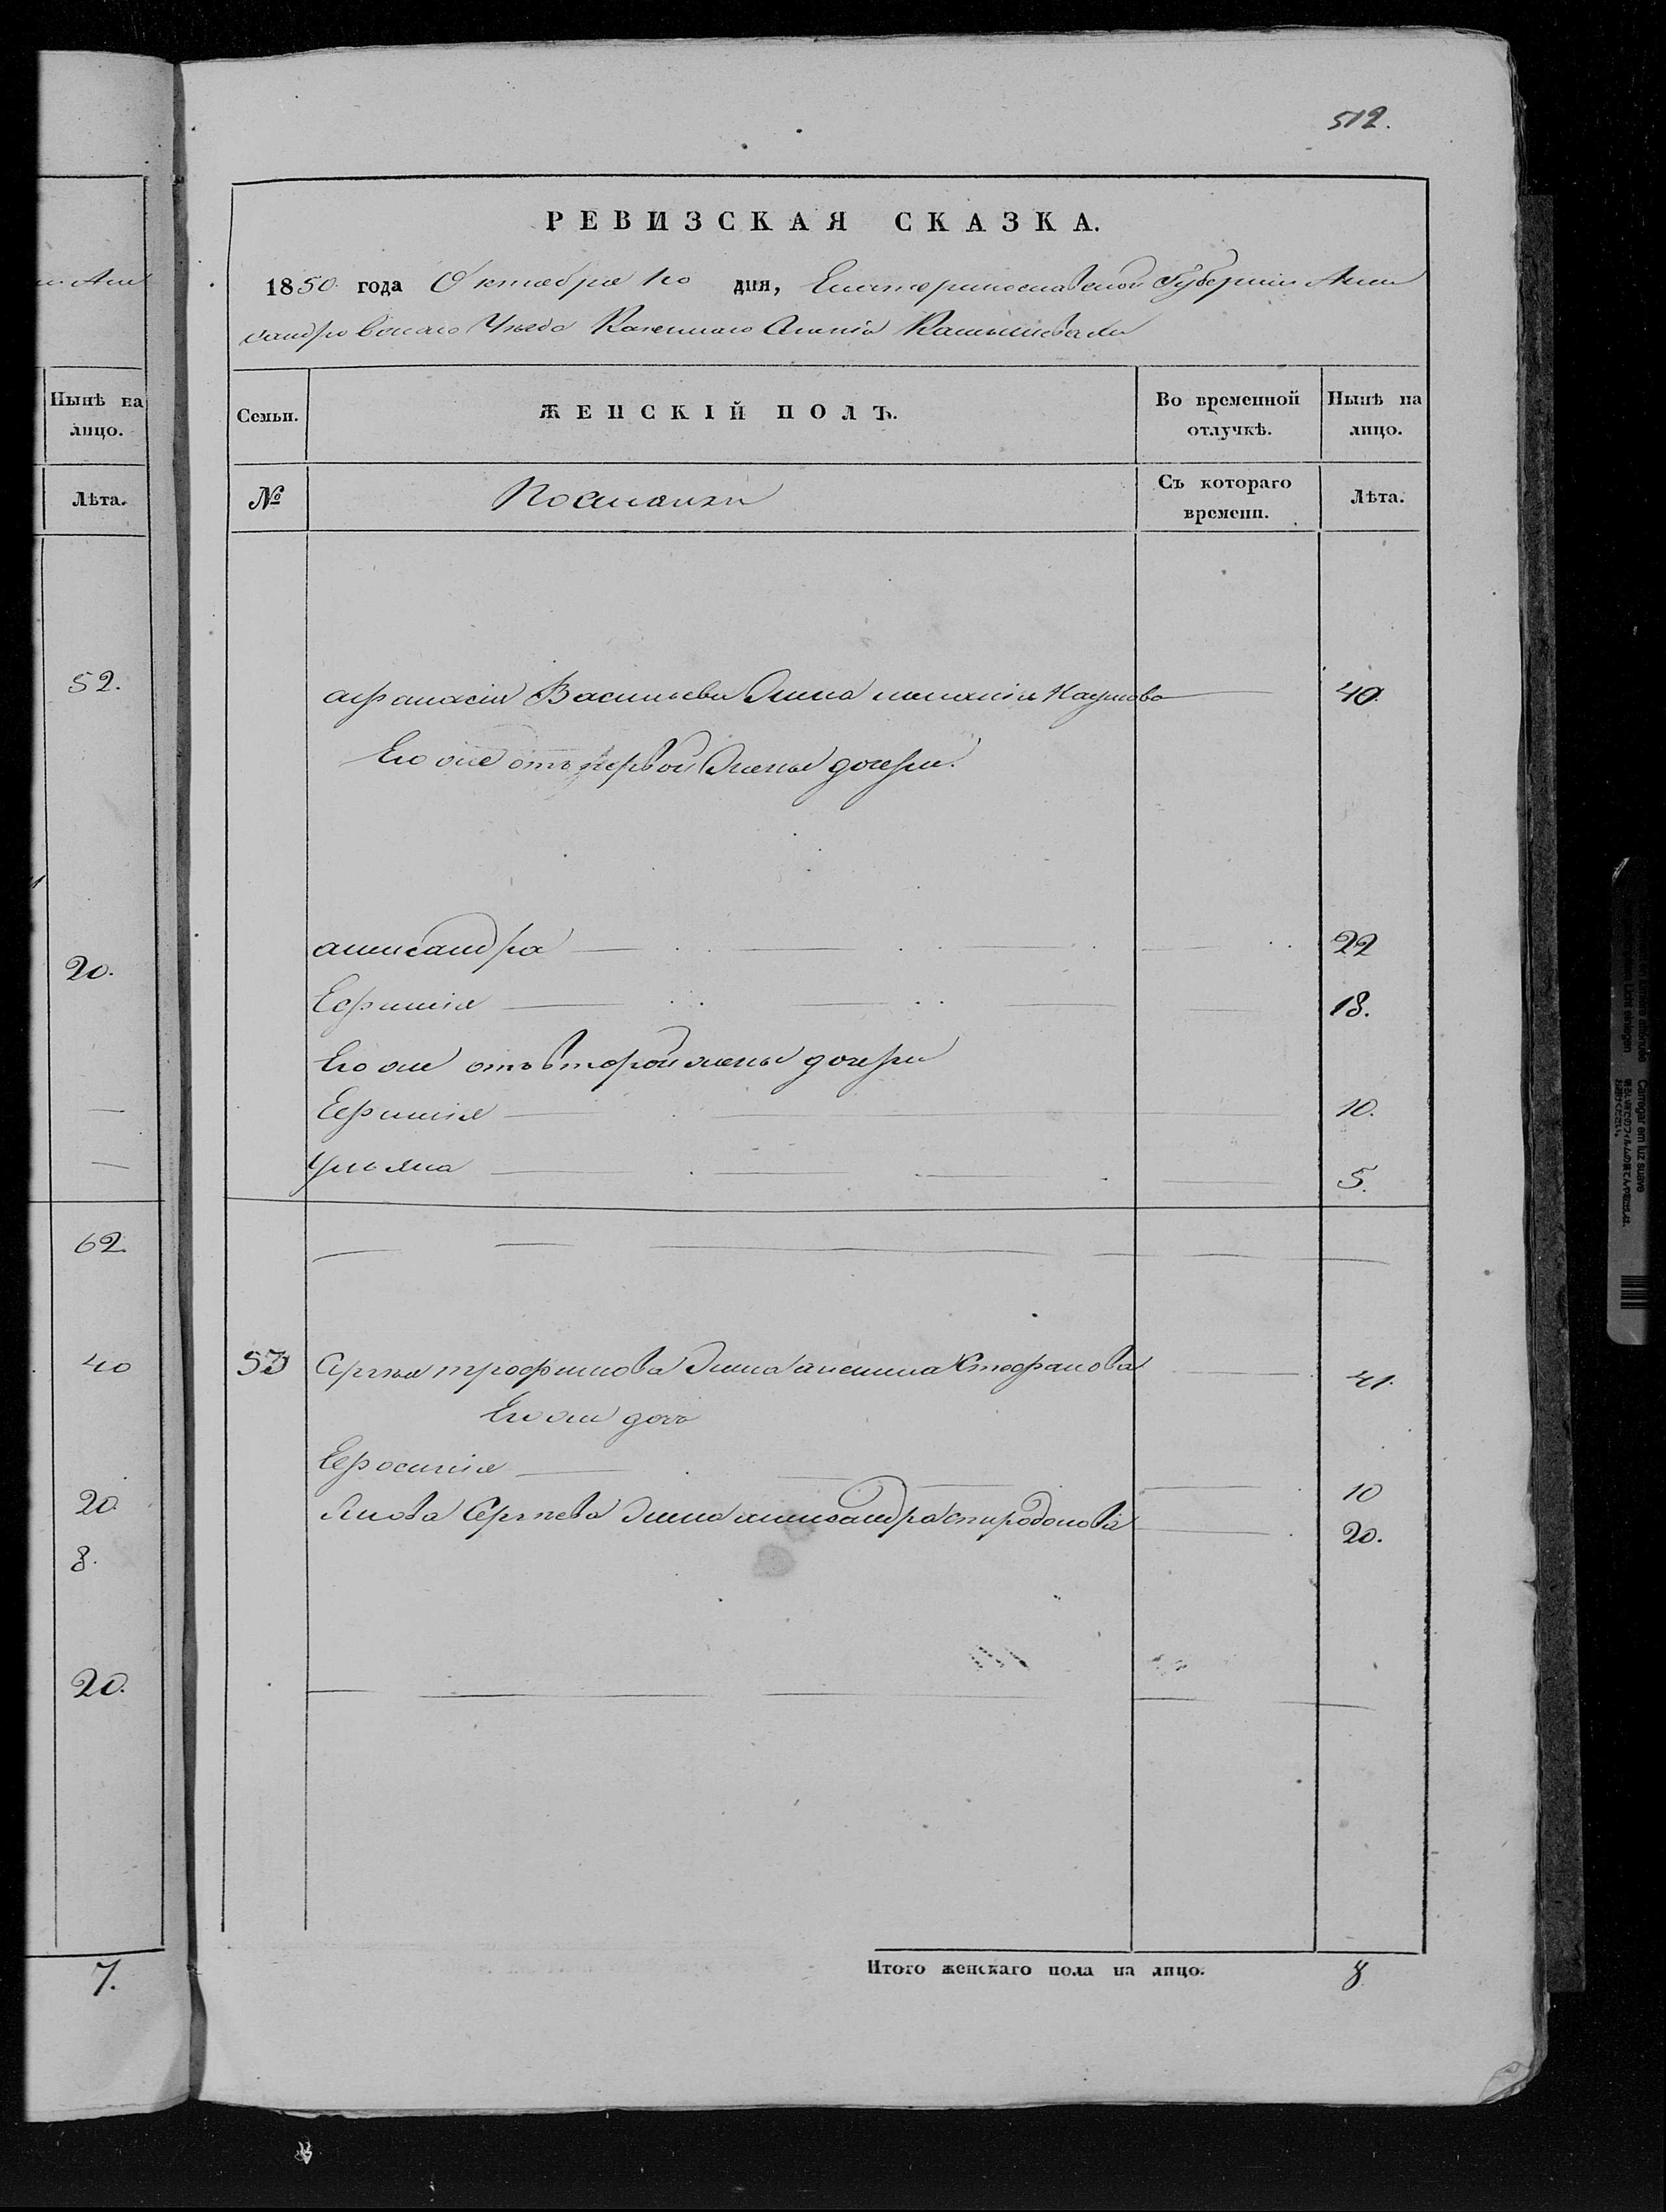 512.
РЕВИЗСКАЯ СКАЗКА.
1850 года Октября 10 дня, Екатеринославской Губернии Алек
сандровскаго Уѣзда Казеннаго Селенія
Нынѣ на лицо.
Семьи.
ЖЕНСКІЙ ПОЛЪ.
Во временной отлучкѣ.
Нынѣ на лицо.
Лѣта.
№
Поселянки
Съ котораго времени.
Лѣта.
52.
Афанасія Васильева жена меланія Наумова 40.
Его же отъ первой жены дочери.
20.
александра 22
Ефимія 18.
Его же отъ второй жены дочери
Ефимія 10.
Ульяна 5.
62.
40
53 Сергѣя трофимова жена акелина Стефанова 41.
Его же дочь
Ефросинія 10
20.
Якова Сергѣева жена александра спиродонова 20.
8.
20.
Итого женскаго пола на лицо. 8
7.